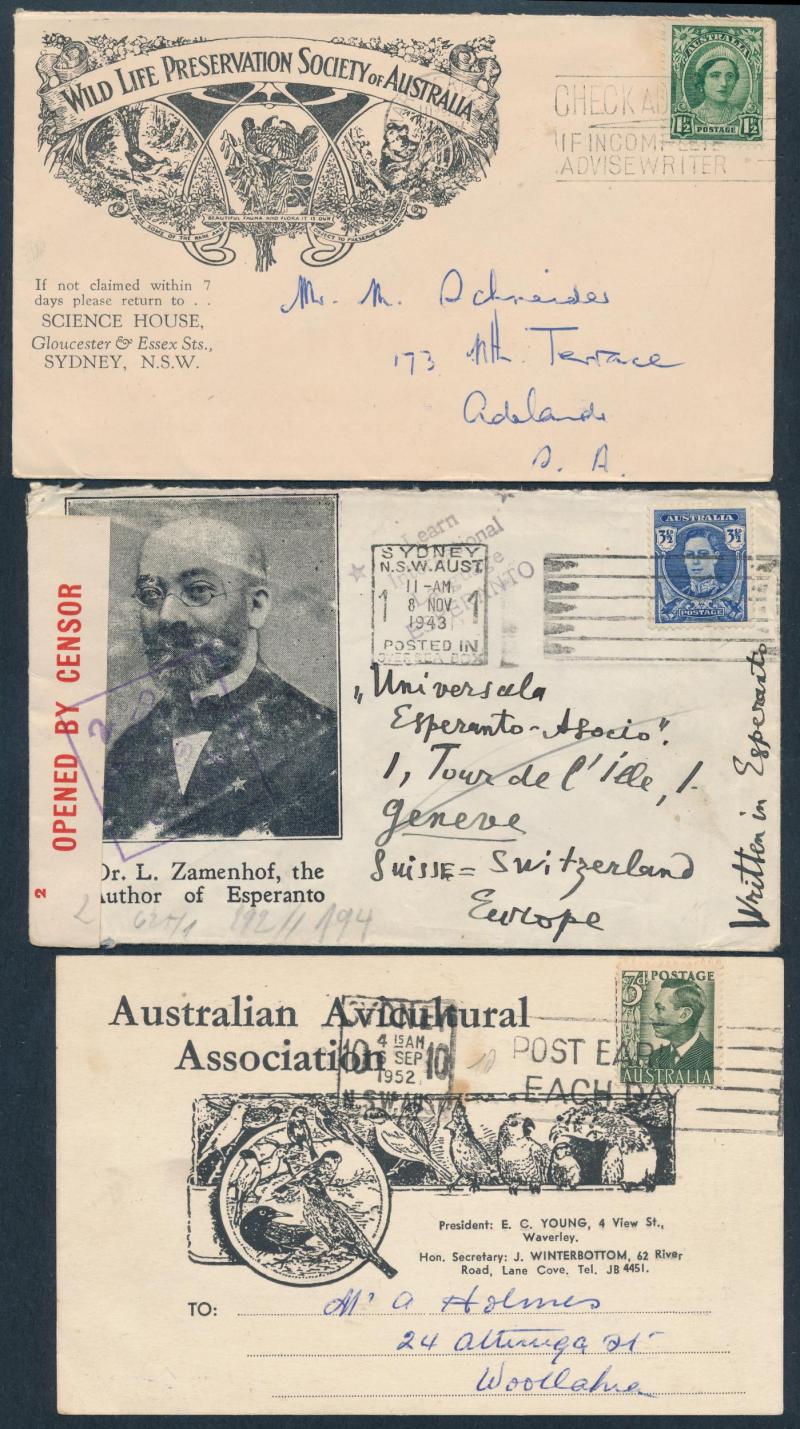 WILD LIFE PRESERVATION SOCIETY OF AUSTRALIA
BEAUTIFUL FAUNA AND FLORA IT IS OUR
AUSTRALIA
1½ POSTAGE 1½
CHECK AD
IF INCOMPLETE
ADVISE WRITER
If not claimed within 7
days please return to . .
SCIENCE HOUSE,
Gloucester & Essex Sts.,
SYDNEY, N.S.W.
Mr. M. Schneider
173 Nth Terrace
Adelaide
S. A.
OPENED BY CENSOR
2
Dr. L. Zamenhof, the
Author of Esperanto
Learn
International
Language
ESPERANTO
SYDNEY
N.S.W. AUST.
11-AM
1 8 NOV 1
1943
POSTED IN
OVERSEA BOX
AUSTRALIA
3½D 3½D
POSTAGE
„Universala
Esperanto-Asocio".
1, Tour de l'Ile, 1.
Geneve
Suisse = Switzerland
Europe
Written in Esperanto
Australian Avicultural
Association
SYDNEY
4 15 AM
10 SEP 10
1952
N.S.W. AUST
POST EARLY
EACH DAY
3D POSTAGE
AUSTRALIA
President: E. C. YOUNG, 4 View St.,
Waverley.
Hon. Secretary: J. WINTERBOTTOM, 62 River
Road, Lane Cove. Tel. JB 4451.
TO: Mr A Holmes
24 Attunga St
Woollahra